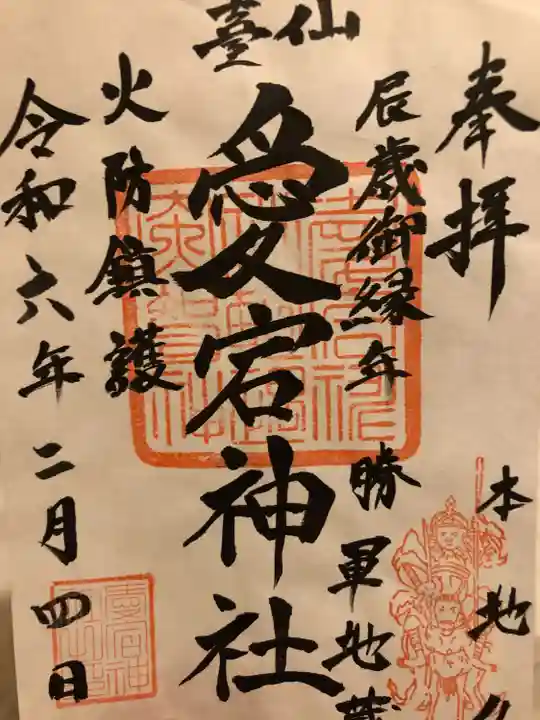 奉拝
本地
辰歳御縁年
勝軍地蔵
仙臺
愛宕神社
火防鎮護
令和六年二月四日